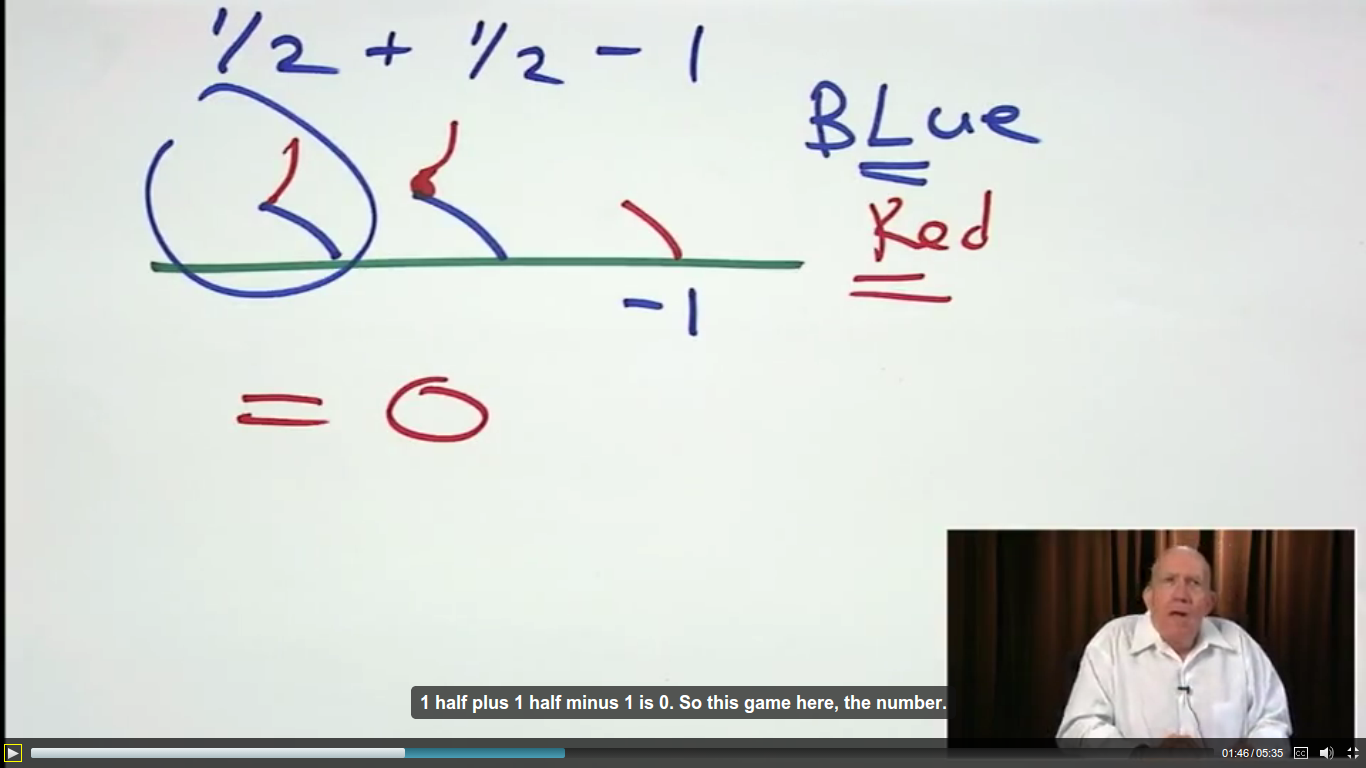 1/2 + 1/2 - 1
BLue
Red
-1
= 0
1 half plus 1 half minus 1 is 0. So this game here, the number.
01:46/05:35 CC